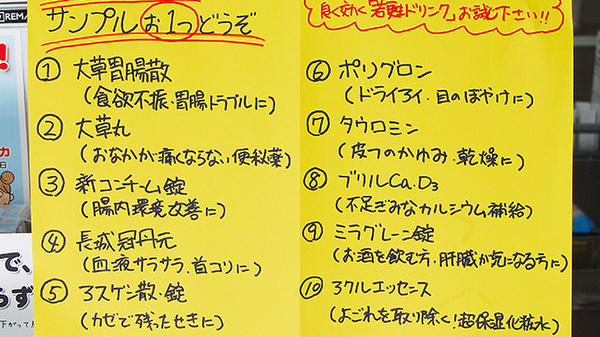 サンプルお1つどうぞ
① 大草胃腸散
(食欲不振・胃腸トラブルに)
② 大草丸
(おなかが痛くならない便秘薬)
③ 新コンチーム錠
(腸内環境改善に)
④ 長城冠丹元
(血液サラサラ.首コリに)
⑤ ヨスゲン散・錠
(カゼで残ったせきに)
良く効く「若甦ドリンク」お試し下さい!!
⑥ ポリグロン
(ドライアイ.目のぼやけに)
⑦ タウロミン
(皮フのかゆみ.乾燥に)
⑧ ブリルCa.D3
(不足ぎみなカルシウム補給)
⑨ ミラグレーン錠
(お酒を飲む方.肝臓が気になる方に)
⑩ ヨクルエッセンス
(よごれを取り除く!超保湿化粧水)
REMA
で、
らず